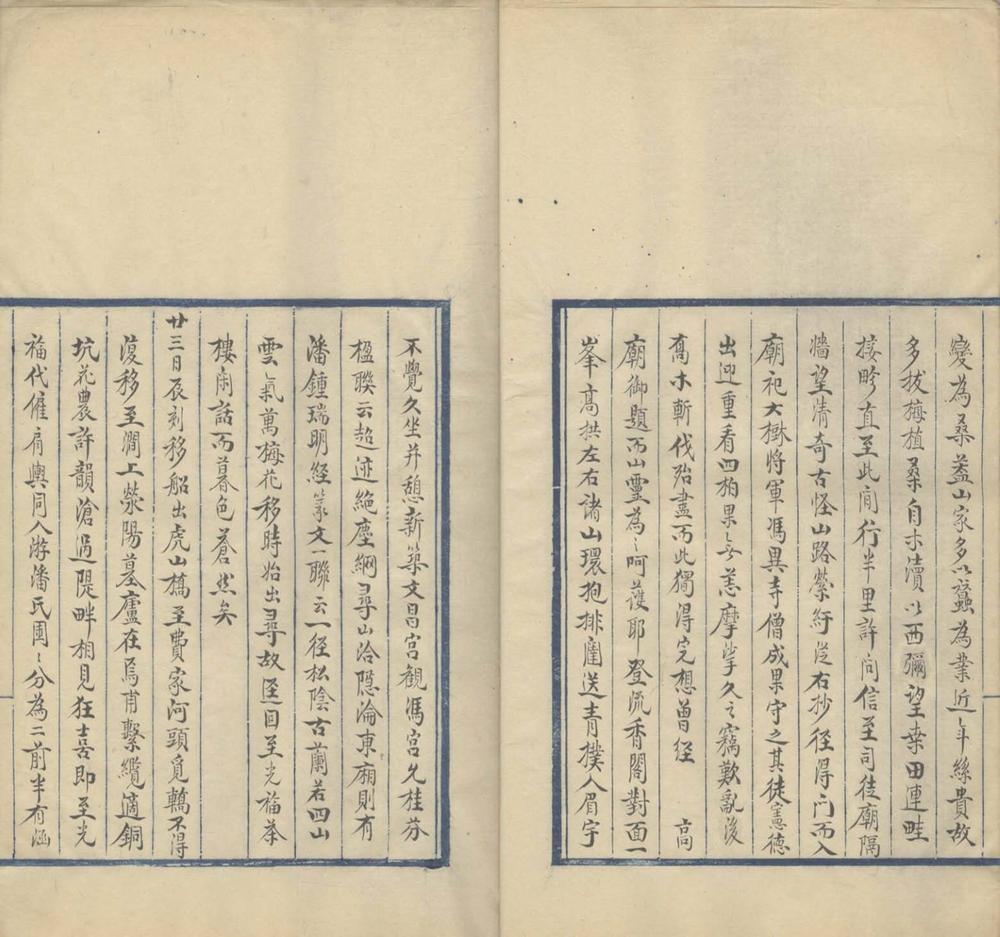 變為桑益山家多以蠶為業近年絲貴故
多拔梅植桑自木瀆以西彌望桑田連畦
接畛直至此間行半里許問信至司徒廟隔
牆望清奇古怪山路縈紆從右抄徑得门而入
廟祀大樹將軍馮異寺僧成果守之其徒憲德
出迎重看四柏果〻無恙摩挲久之竊歎亂後
喬木斬伐殆盡而此獨得完想曾經 高
廟御題而山靈為〻呵護耶登流香閣對面一
峯高拱左右諸山環抱排闥送青撲人眉宇
不覺久坐并憩新築文昌宮観馮宮允桂芬
楹聯云超迹絕塵網尋山洽隱淪東廂則有
潘鍾瑞明經篆文一聯云一径松陰古蘭若四山
雲氣萬梅花移時始出尋故徑回至光福茶
樓閒話而暮色蒼然矣
廿三日辰刻移船出虎山橋至費家河頭覓轎不得
復移至澗上滎陽墓廬在焉甫繫纜適銅
坑花農許韻滄過隄畔相見狂喜即至光
福代僱肩輿同入游潘氏園〻分為二前半有涵